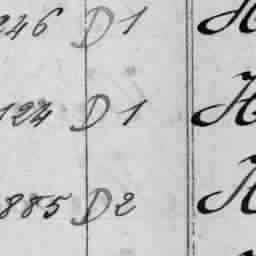 246 D 1 H
124 D 1 H
885 D 2 H